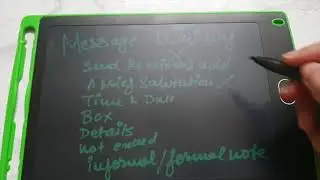 Message Writing
Send Receivers add
A brief Salutation ✓
Time & Date
Box
Details
not exceed
informal/formal note